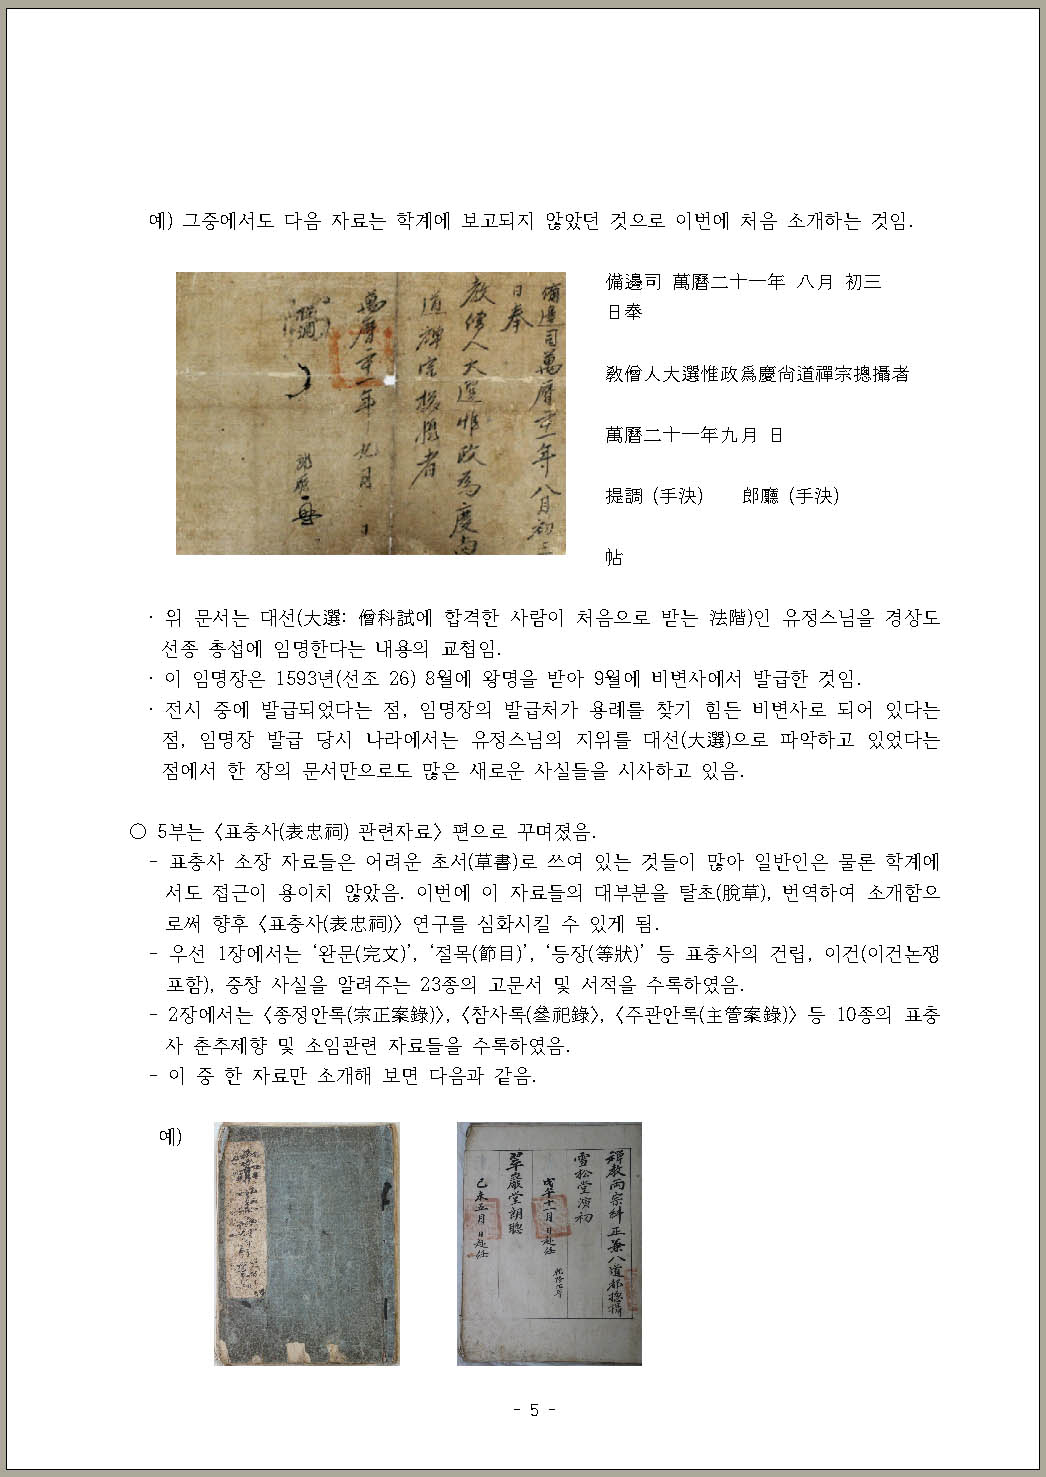 예) 그중에서도 다음 자료는 학계에 보고되지 않았던 것으로 이번에 처음 소개하는 것임.
備邊司萬曆二十一年八月初三
日奉
教僧人大選惟政為慶尙
道禪宗摠攝者
萬曆二十一年九月 日
提調
郎廳
備邊司 萬曆二十一年 八月 初三
日奉
敎僧人大選惟政爲慶尙道禪宗摠攝者
萬曆二十一年九月 日
提調 (手決) 郎廳 (手決)
帖
· 위 문서는 대선(大選: 僧科試에 합격한 사람이 처음으로 받는 法階)인 유정스님을 경상도
선종 총섭에 임명한다는 내용의 교첩임.
· 이 임명장은 1593년(선조 26) 8월에 왕명을 받아 9월에 비변사에서 발급한 것임.
· 전시 중에 발급되었다는 점, 임명장의 발급처가 용례를 찾기 힘든 비변사로 되어 있다는
점, 임명장 발급 당시 나라에서는 유정스님의 지위를 대선(大選)으로 파악하고 있었다는
점에서 한 장의 문서만으로도 많은 새로운 사실들을 시사하고 있음.
○ 5부는 <표충사(表忠祠) 관련자료> 편으로 꾸며졌음.
- 표충사 소장 자료들은 어려운 초서(草書)로 쓰여 있는 것들이 많아 일반인은 물론 학계에
서도 접근이 용이치 않았음. 이번에 이 자료들의 대부분을 탈초(脫草), 번역하여 소개함으
로써 향후 <표충사(表忠祠)> 연구를 심화시킬 수 있게 됨.
- 우선 1장에서는 ‘완문(完文)’, ‘절목(節目)’, ‘등장(等狀)’ 등 표충사의 건립, 이건(이건논쟁
포함), 중창 사실을 알려주는 23종의 고문서 및 서적을 수록하였음.
- 2장에서는 <종정안록(宗正案錄)>, <참사록(參祀錄>, <주관안록(主管案錄)> 등 10종의 표충
사 춘추제향 및 소임관련 자료들을 수록하였음.
- 이 중 한 자료만 소개해 보면 다음과 같음.
예)
禪教兩宗糾正兼八道都摠攝
雪松堂演初
戊午十一月 日赴任
翠巖堂朗聰
己未五月 日赴任
- 5 -